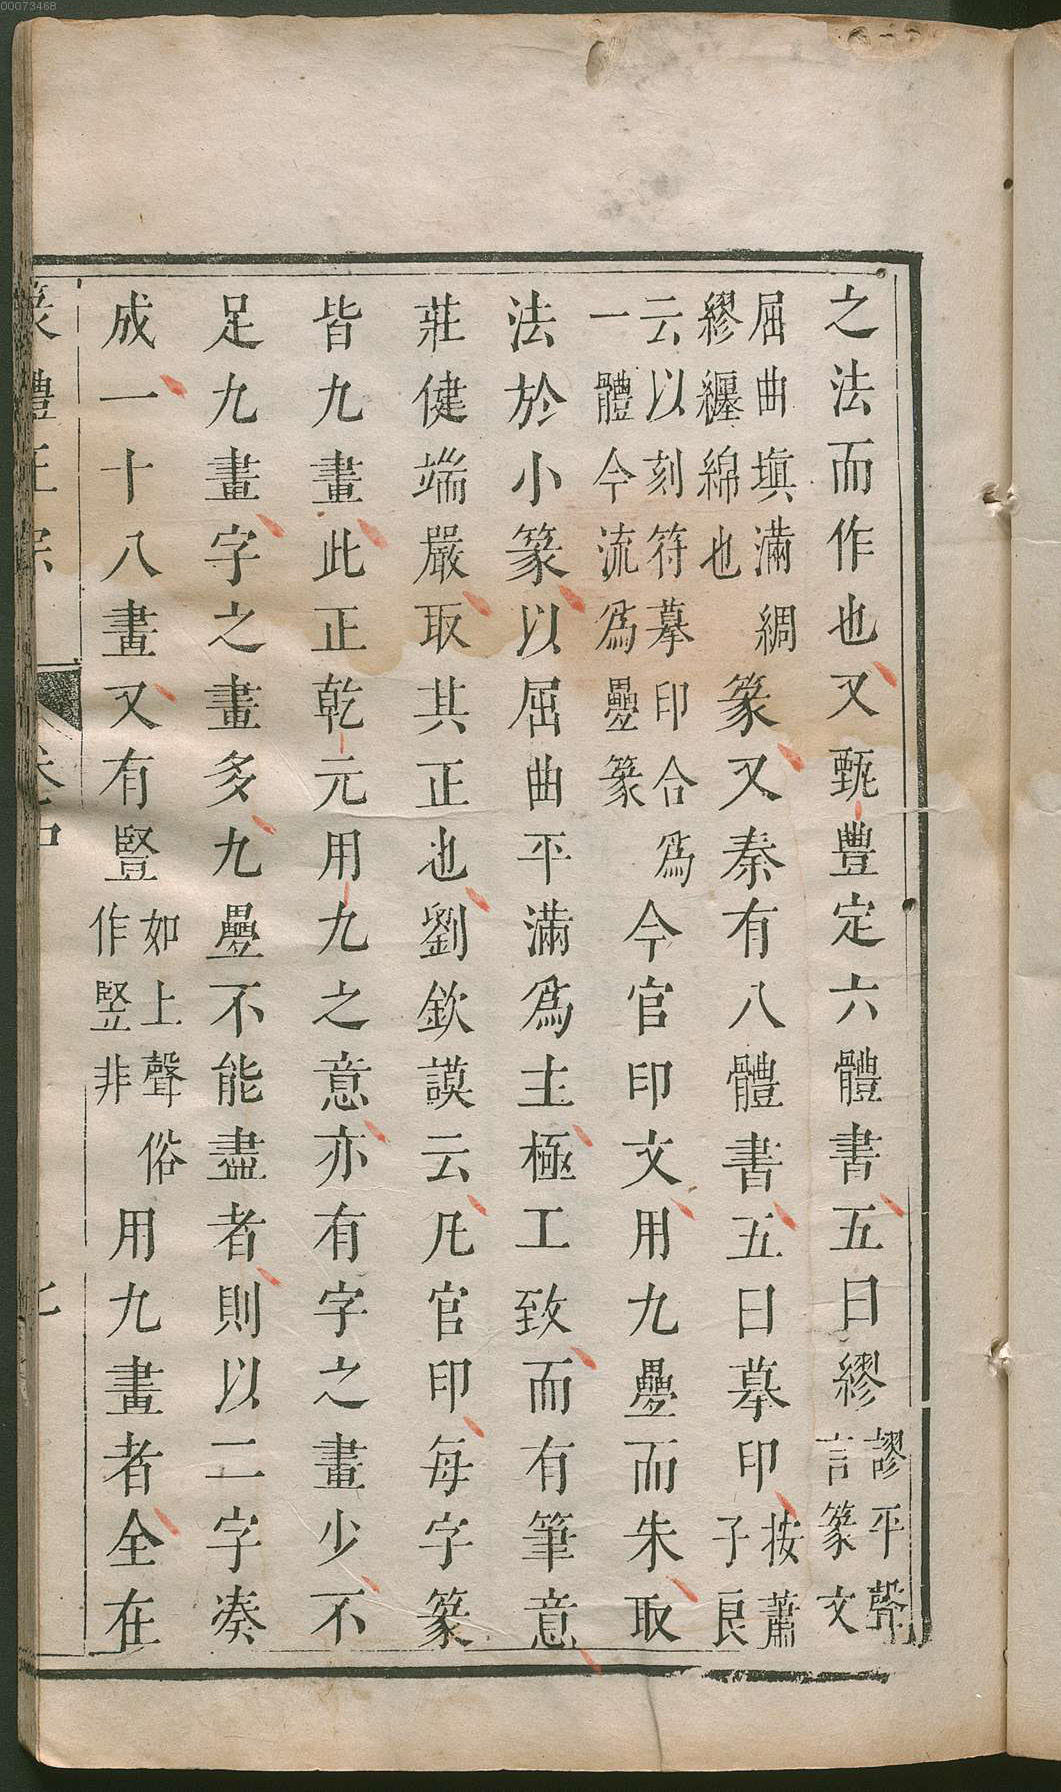 00073468
之法而作也又甄豐定六體書五曰繆謬平聲言篆文
屈曲塡滿綢繆纒綿也篆又秦有八體書五曰摹印按蕭子良
云以刻符摹印合爲一體今流爲疊篆今官印文用九疊而朱取
法於小篆以屈曲平滿爲主極工致而有筆意
莊健端嚴取其正也劉欽謨云凡官印每字篆
皆九畫此正乾元用九之意亦有字之畫少不
足九畫字之畫多九疊不能盡者則以二字凑
成一十八畫又有豎如上聲俗作竪非用九畫者全在
篆體正宗